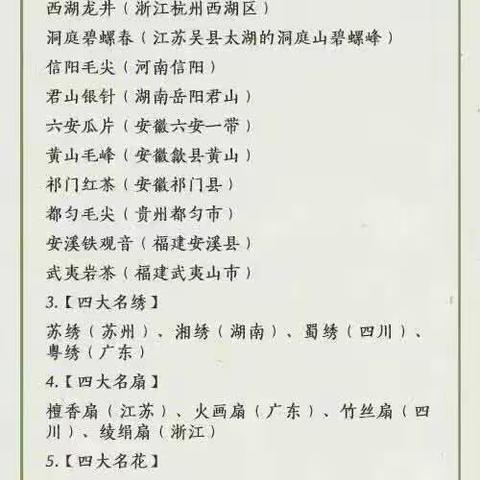 西湖龙井（浙江杭州西湖区）
洞庭碧螺春（江苏吴县太湖的洞庭山碧螺峰）
信阳毛尖（河南信阳）
君山银针（湖南岳阳君山）
六安瓜片（安徽六安一带）
黄山毛峰（安徽歙县黄山）
祁门红茶（安徽祁门县）
都匀毛尖（贵州都匀市）
安溪铁观音（福建安溪县）
武夷岩茶（福建武夷山市）
3.【四大名绣】
苏绣（苏州）、湘绣（湖南）、蜀绣（四川）、
粤绣（广东）
4.【四大名扇】
檀香扇（江苏）、火画扇（广东）、竹丝扇（四
川）、绫绢扇（浙江）
5.【四大名花】